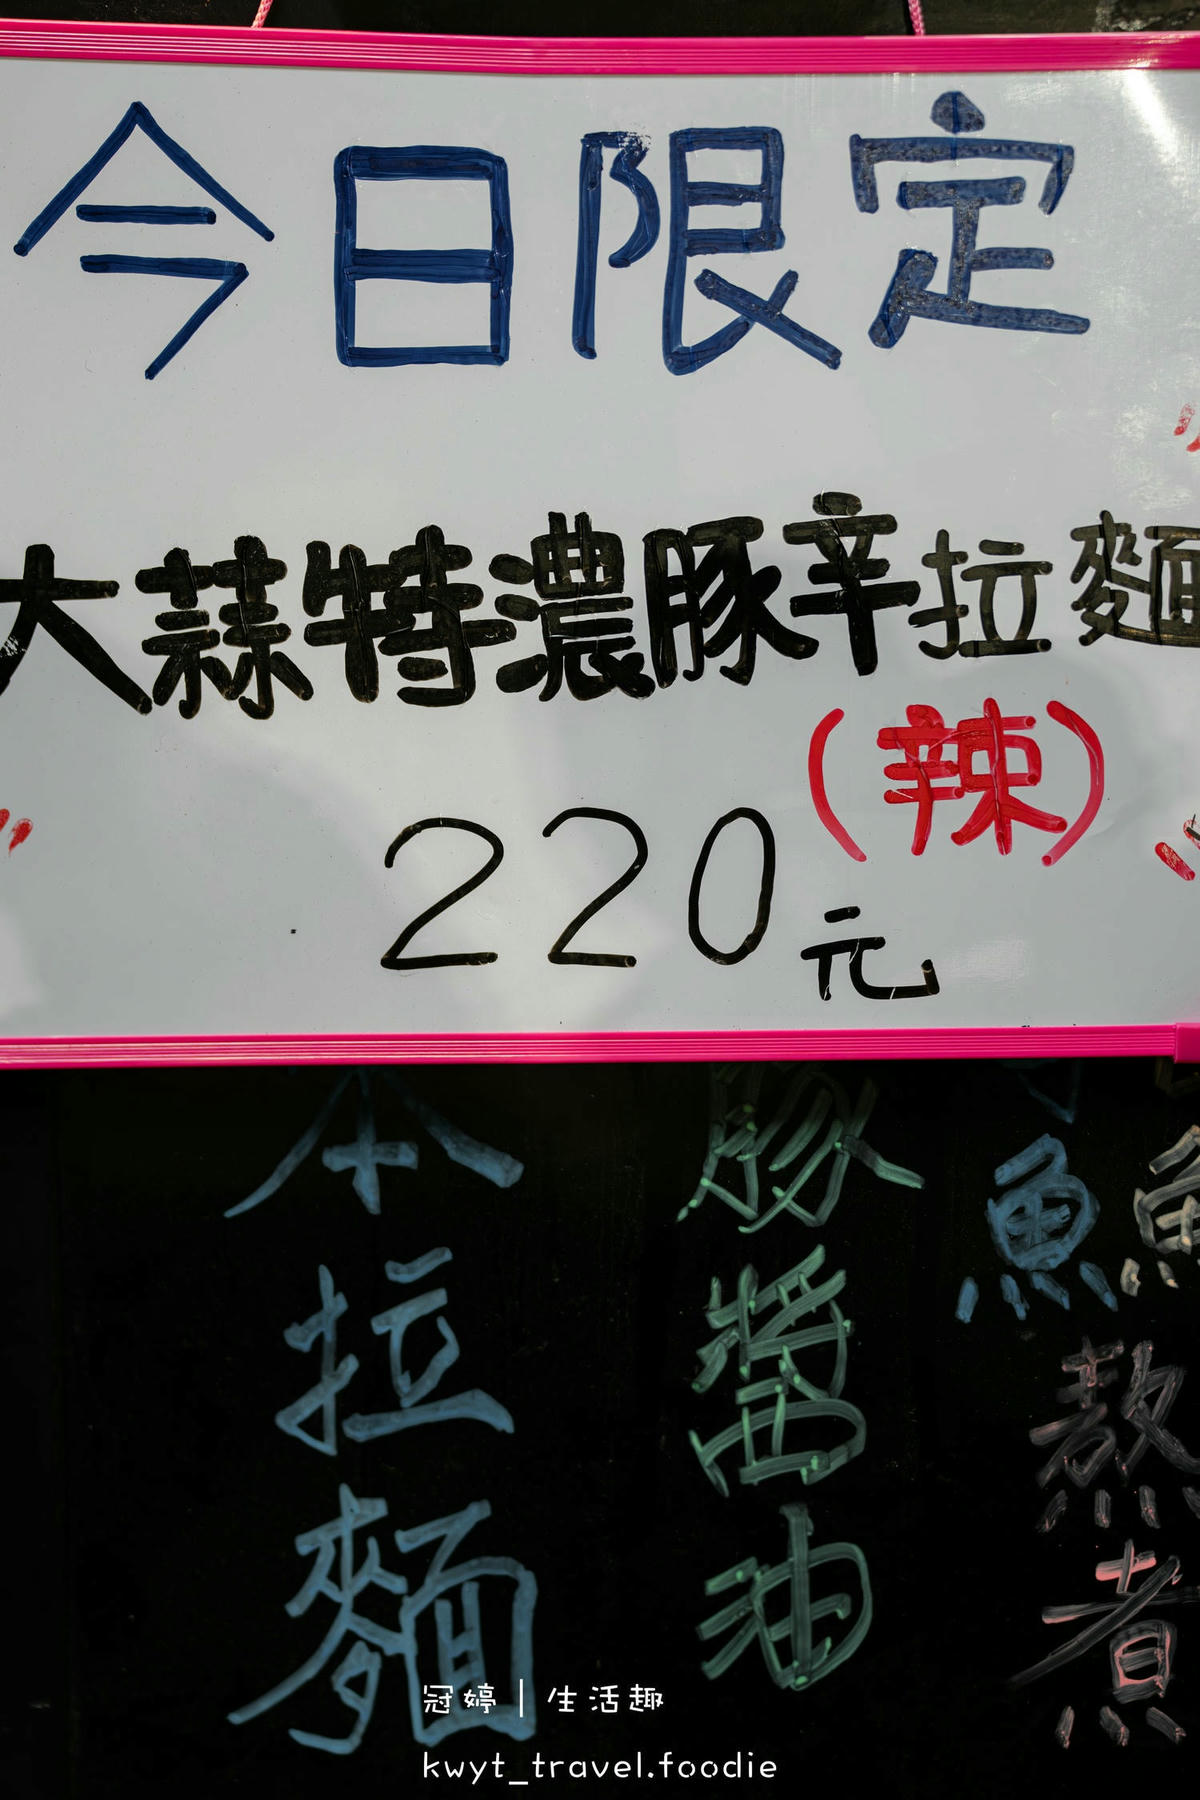 今日限定
大蒜特濃豚辛拉麵
(辣)
220元
本拉麵
豚醬油
魚
熬煮
冠婷 | 生活趣
kwyt_travel.foodie